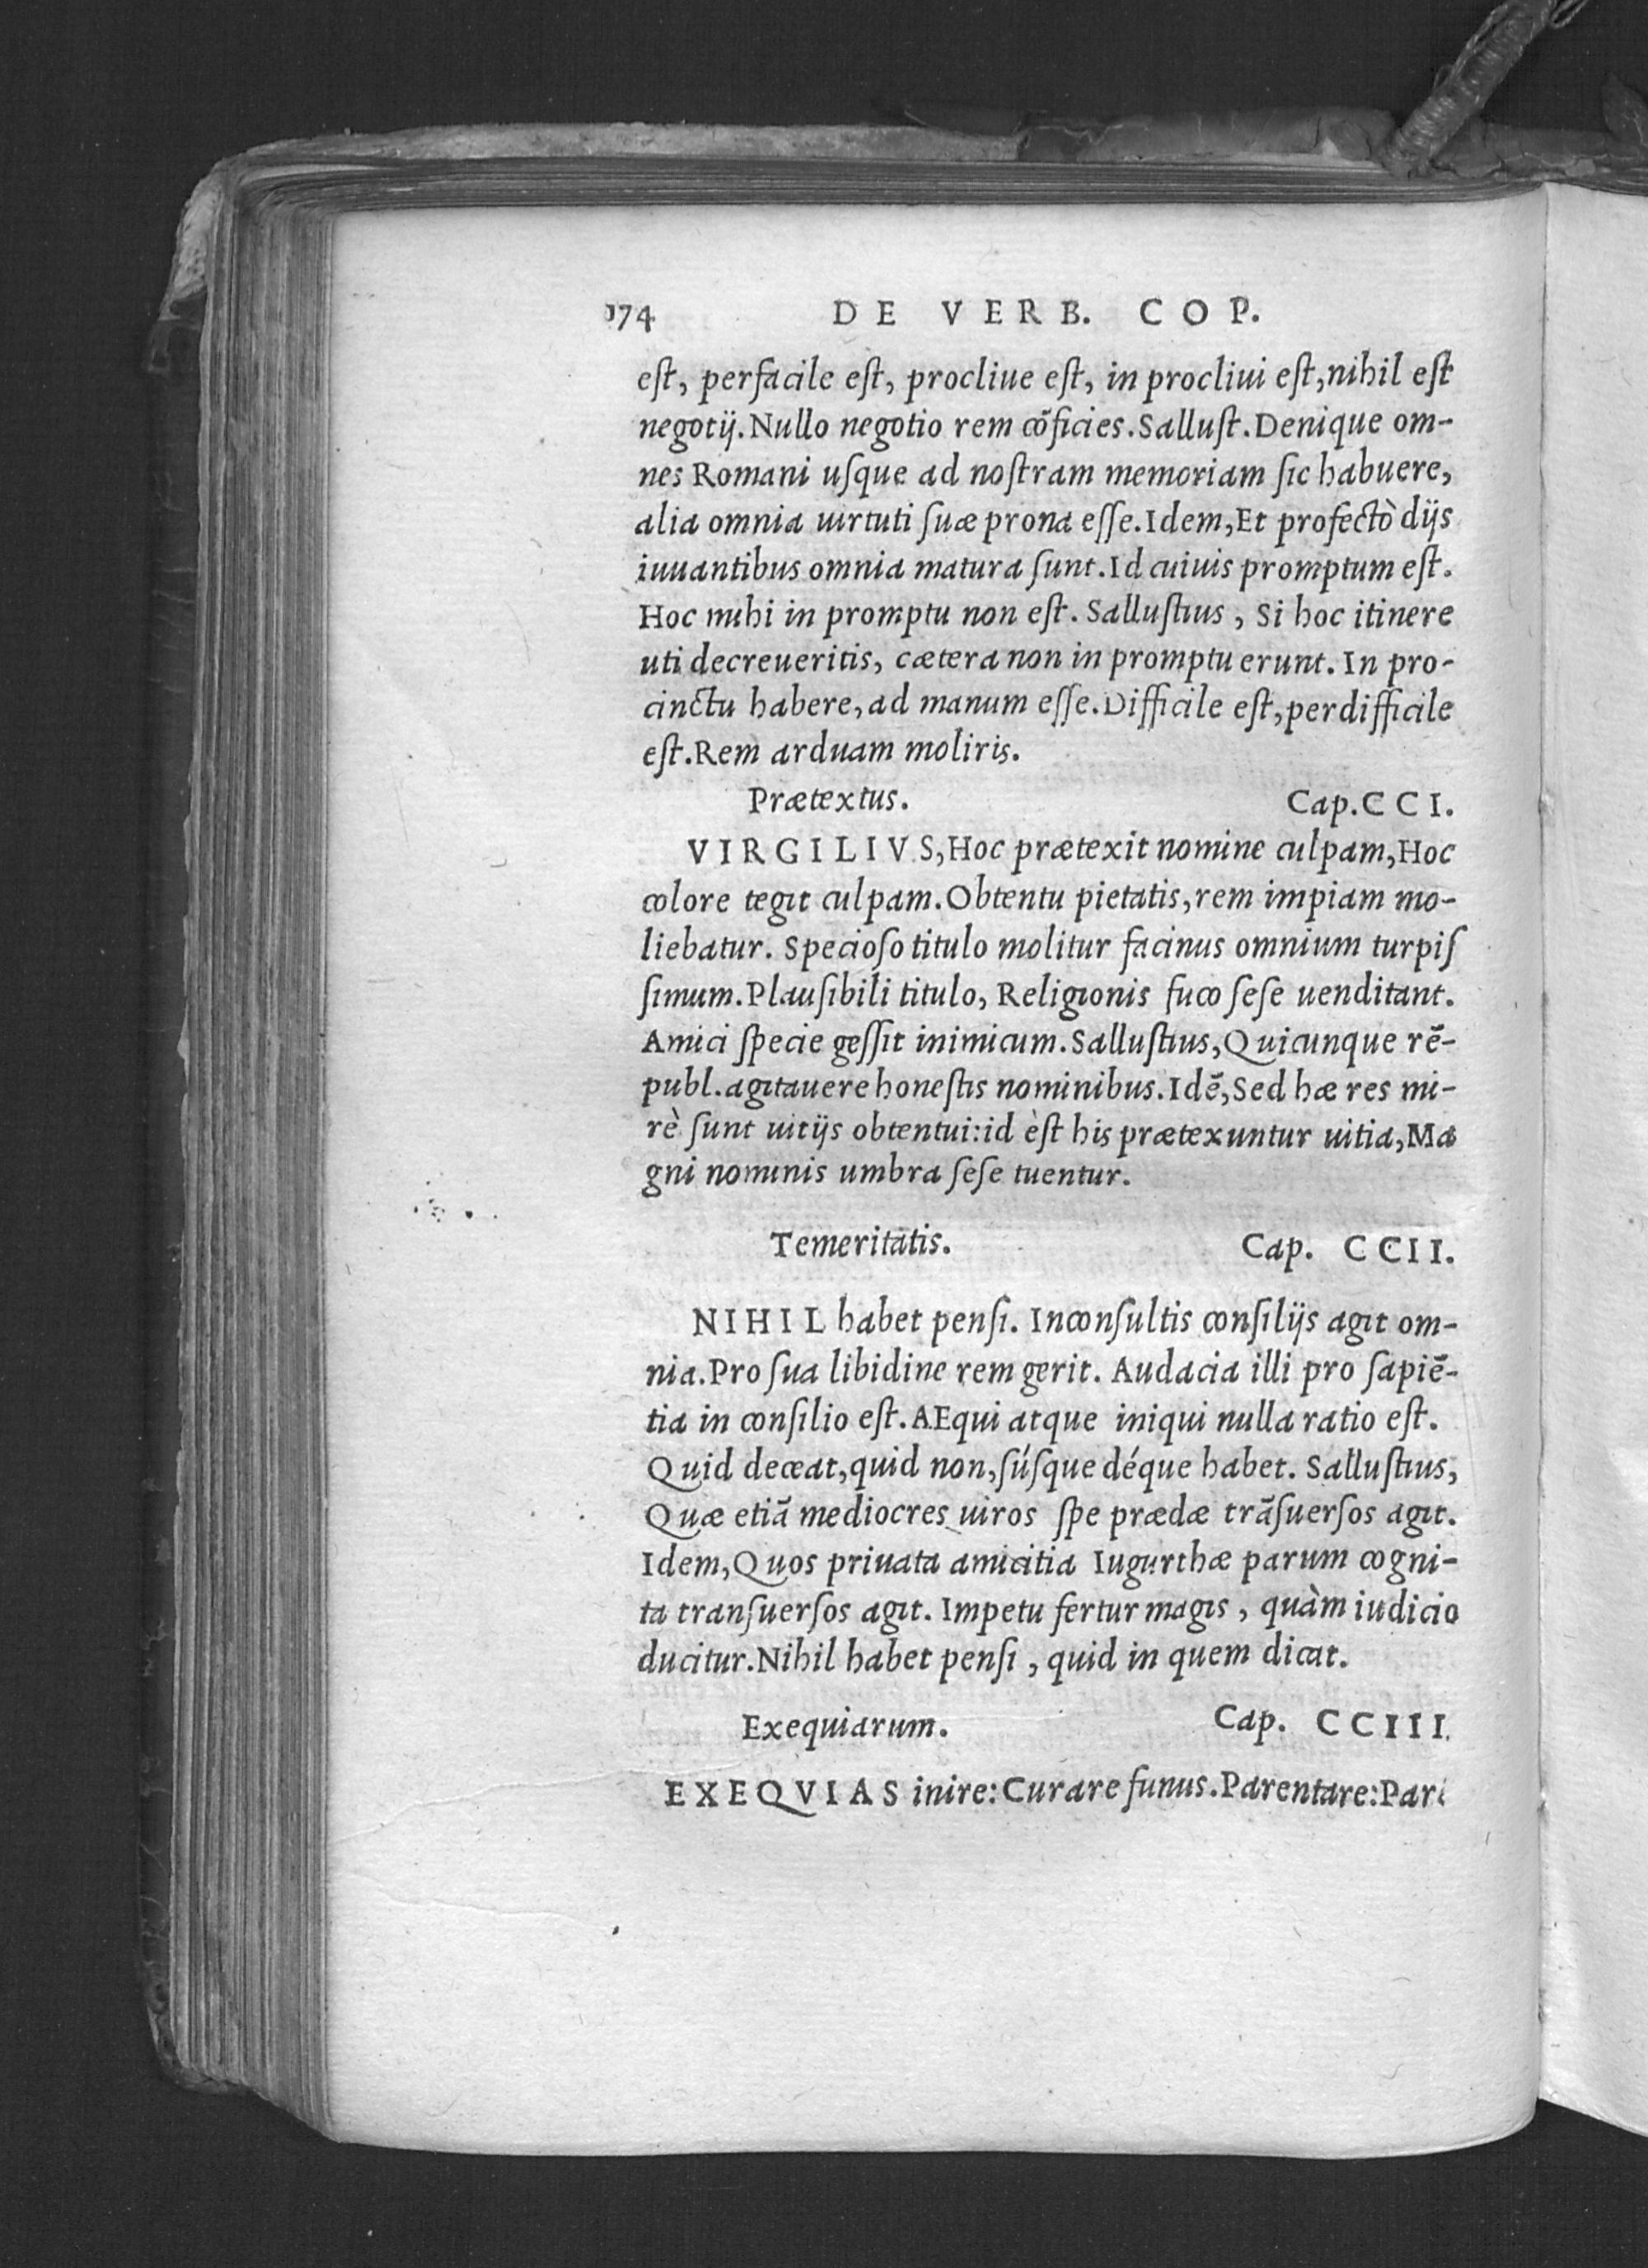 174 DE VERB. COP.
eſt, perfacile eſt, procliue eſt, in procliui eſt,nihil eſt
negotij.Nullo negotio rem cõficies.Salluſt.Denique om-
nes Romani uſque ad noſtram memoriam ſic habuere,
alia omnia uirtuti ſuæ prona eſſe.Idem,Et profectò dijs
iuuantibus omnia matura ſunt.Id cuiuis promptum eſt.
Hoc mihi in promptu non eſt. Salluſtius, Si hoc itinere
uti decreueritis, cætera non in promptu erunt. In pro-
cinctu habere,ad manum eſſe.Difficile eſt,perdifficile
eſt.Rem arduam moliris.
Prætextus. Cap.CCI.
VIRGILIVS,Hoc prætexit nomine culpam,Hoc
colore tegit culpam.Obtentu pietatis,rem impiam mo-
liebatur. Specioſo titulo molitur facinus omnium turpiſ
ſimum.Plauſibili titulo, Religionis fuco ſeſe uenditant.
Amici ſpecie geſſit inimicum.Salluſtius,Quicunque rẽ-
publ.agitauere honeſtis nominibus.Idẽ,Sed hæ res mi-
rè ſunt uitijs obtentui:id èſt his prætexuntur uitia,Ma
gni nominis umbra ſeſe tuentur.
Temeritatis. Cap. CCII.
NIHIL habet penſi. Inconſultis conſilijs agit om-
nia.Pro ſua libidine rem gerit. Audacia illi pro ſapiẽ-
tia in conſilio eſt.AEqui atque iniqui nulla ratio eſt.
Quid deceat,quid non,ſúſque déque habet. Salluſtius,
Quæ etiã mediocres uiros ſpe prædæ trãſuerſos agit.
Idem,Quos priuata amicitia Iugurthæ parum cogni-
ta tranſuerſos agit. Impetu fertur magis, quàm iudicio
ducitur.Nihil habet penſi, quid in quem dicat.
Exequiarum. Cap. CCIII.
EXEQVIAS inire:Curare funus.Parentare:Pari